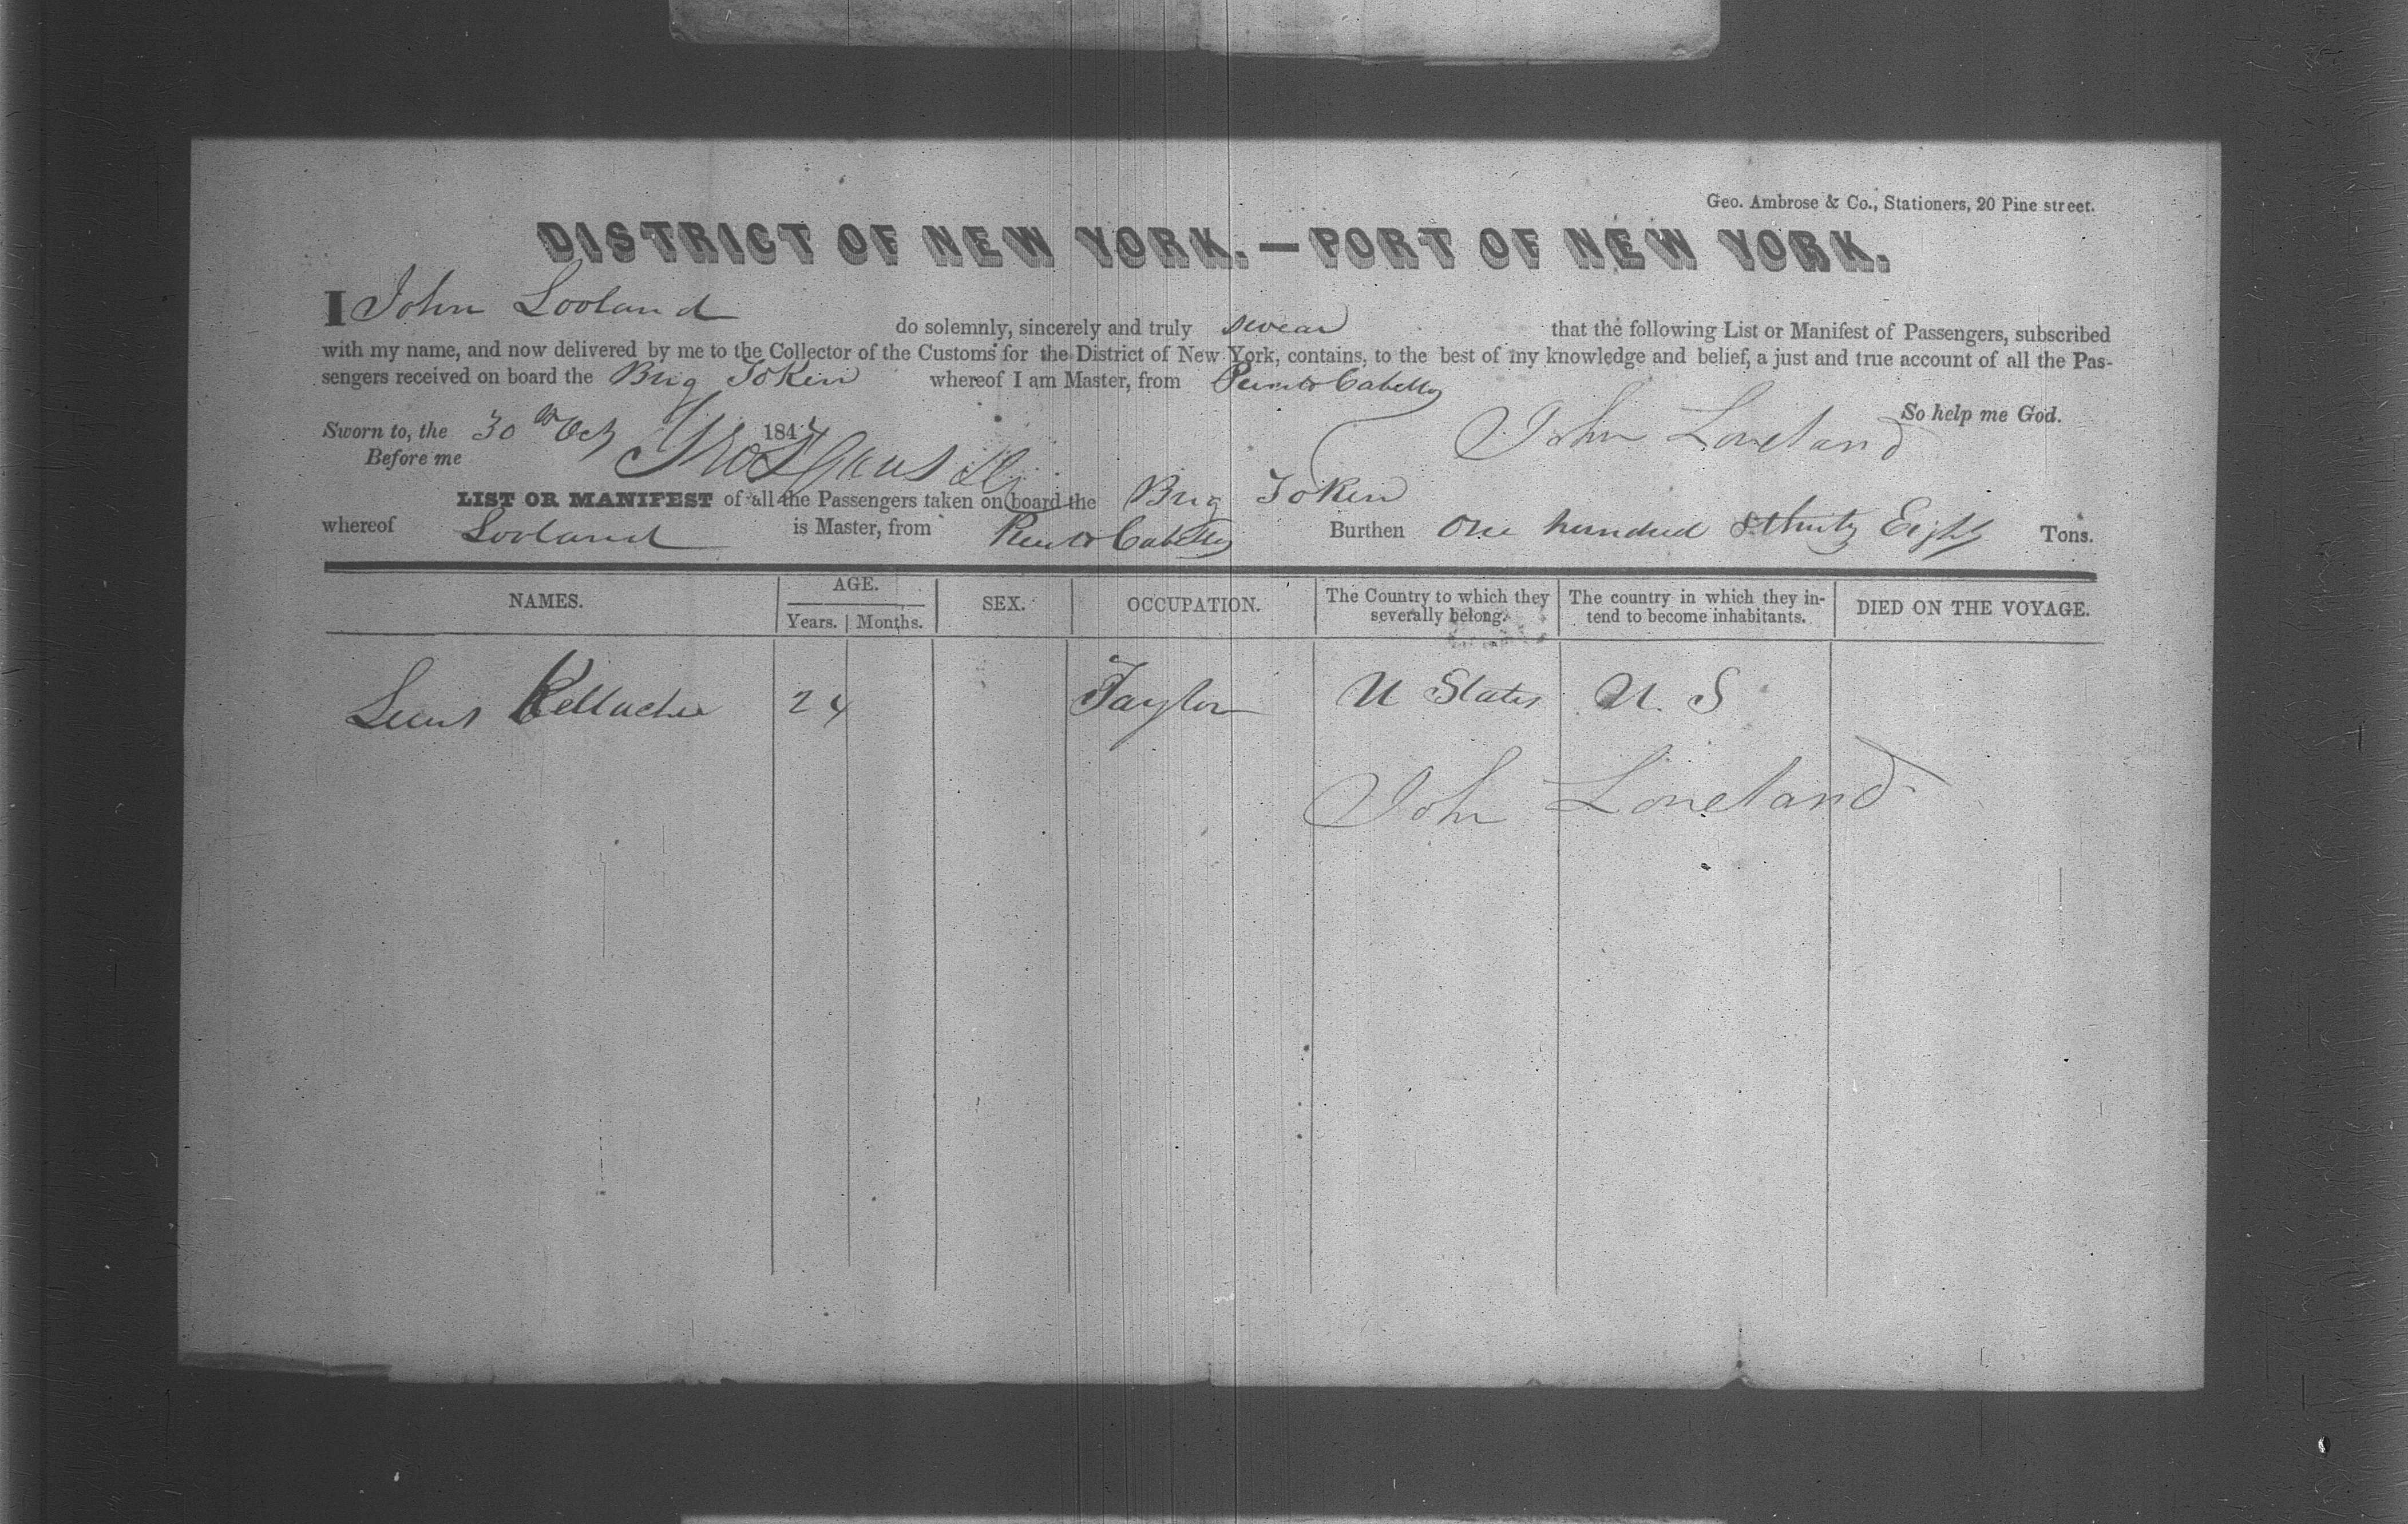 Geo. Ambrose & Co., Stationers, 20 Pine street.
DISTRICT OF NEW YORK.—PORT OF NEW YORK.
I John Looland do solemnly, sincerely and truly swear that the following List or Manifest of Passengers, subscribed
with my name, and now delivered by me to the Collector of the Customs for the District of New York, contains, to the best of my knowledge and belief, a just and true account of all the Pas-
sengers received on board the Brig Token whereof I am Master, from Puerto Cabello
So help me God.
Sworn to, the 30th Oct 1847 John Loveland
Before me
LIST OR MANIFEST of all the Passengers taken on board the Brig Token
whereof Looland is Master, from Puerto Cabello Burthen One hundred & thirty Eight Tons.
NAMES. AGE. SEX. OCCUPATION. The Country to which they severally belong. The country in which they in-tend to become inhabitants. DIED ON THE VOYAGE.
Years. Months.
24 Taylor U States U. S
John Loveland